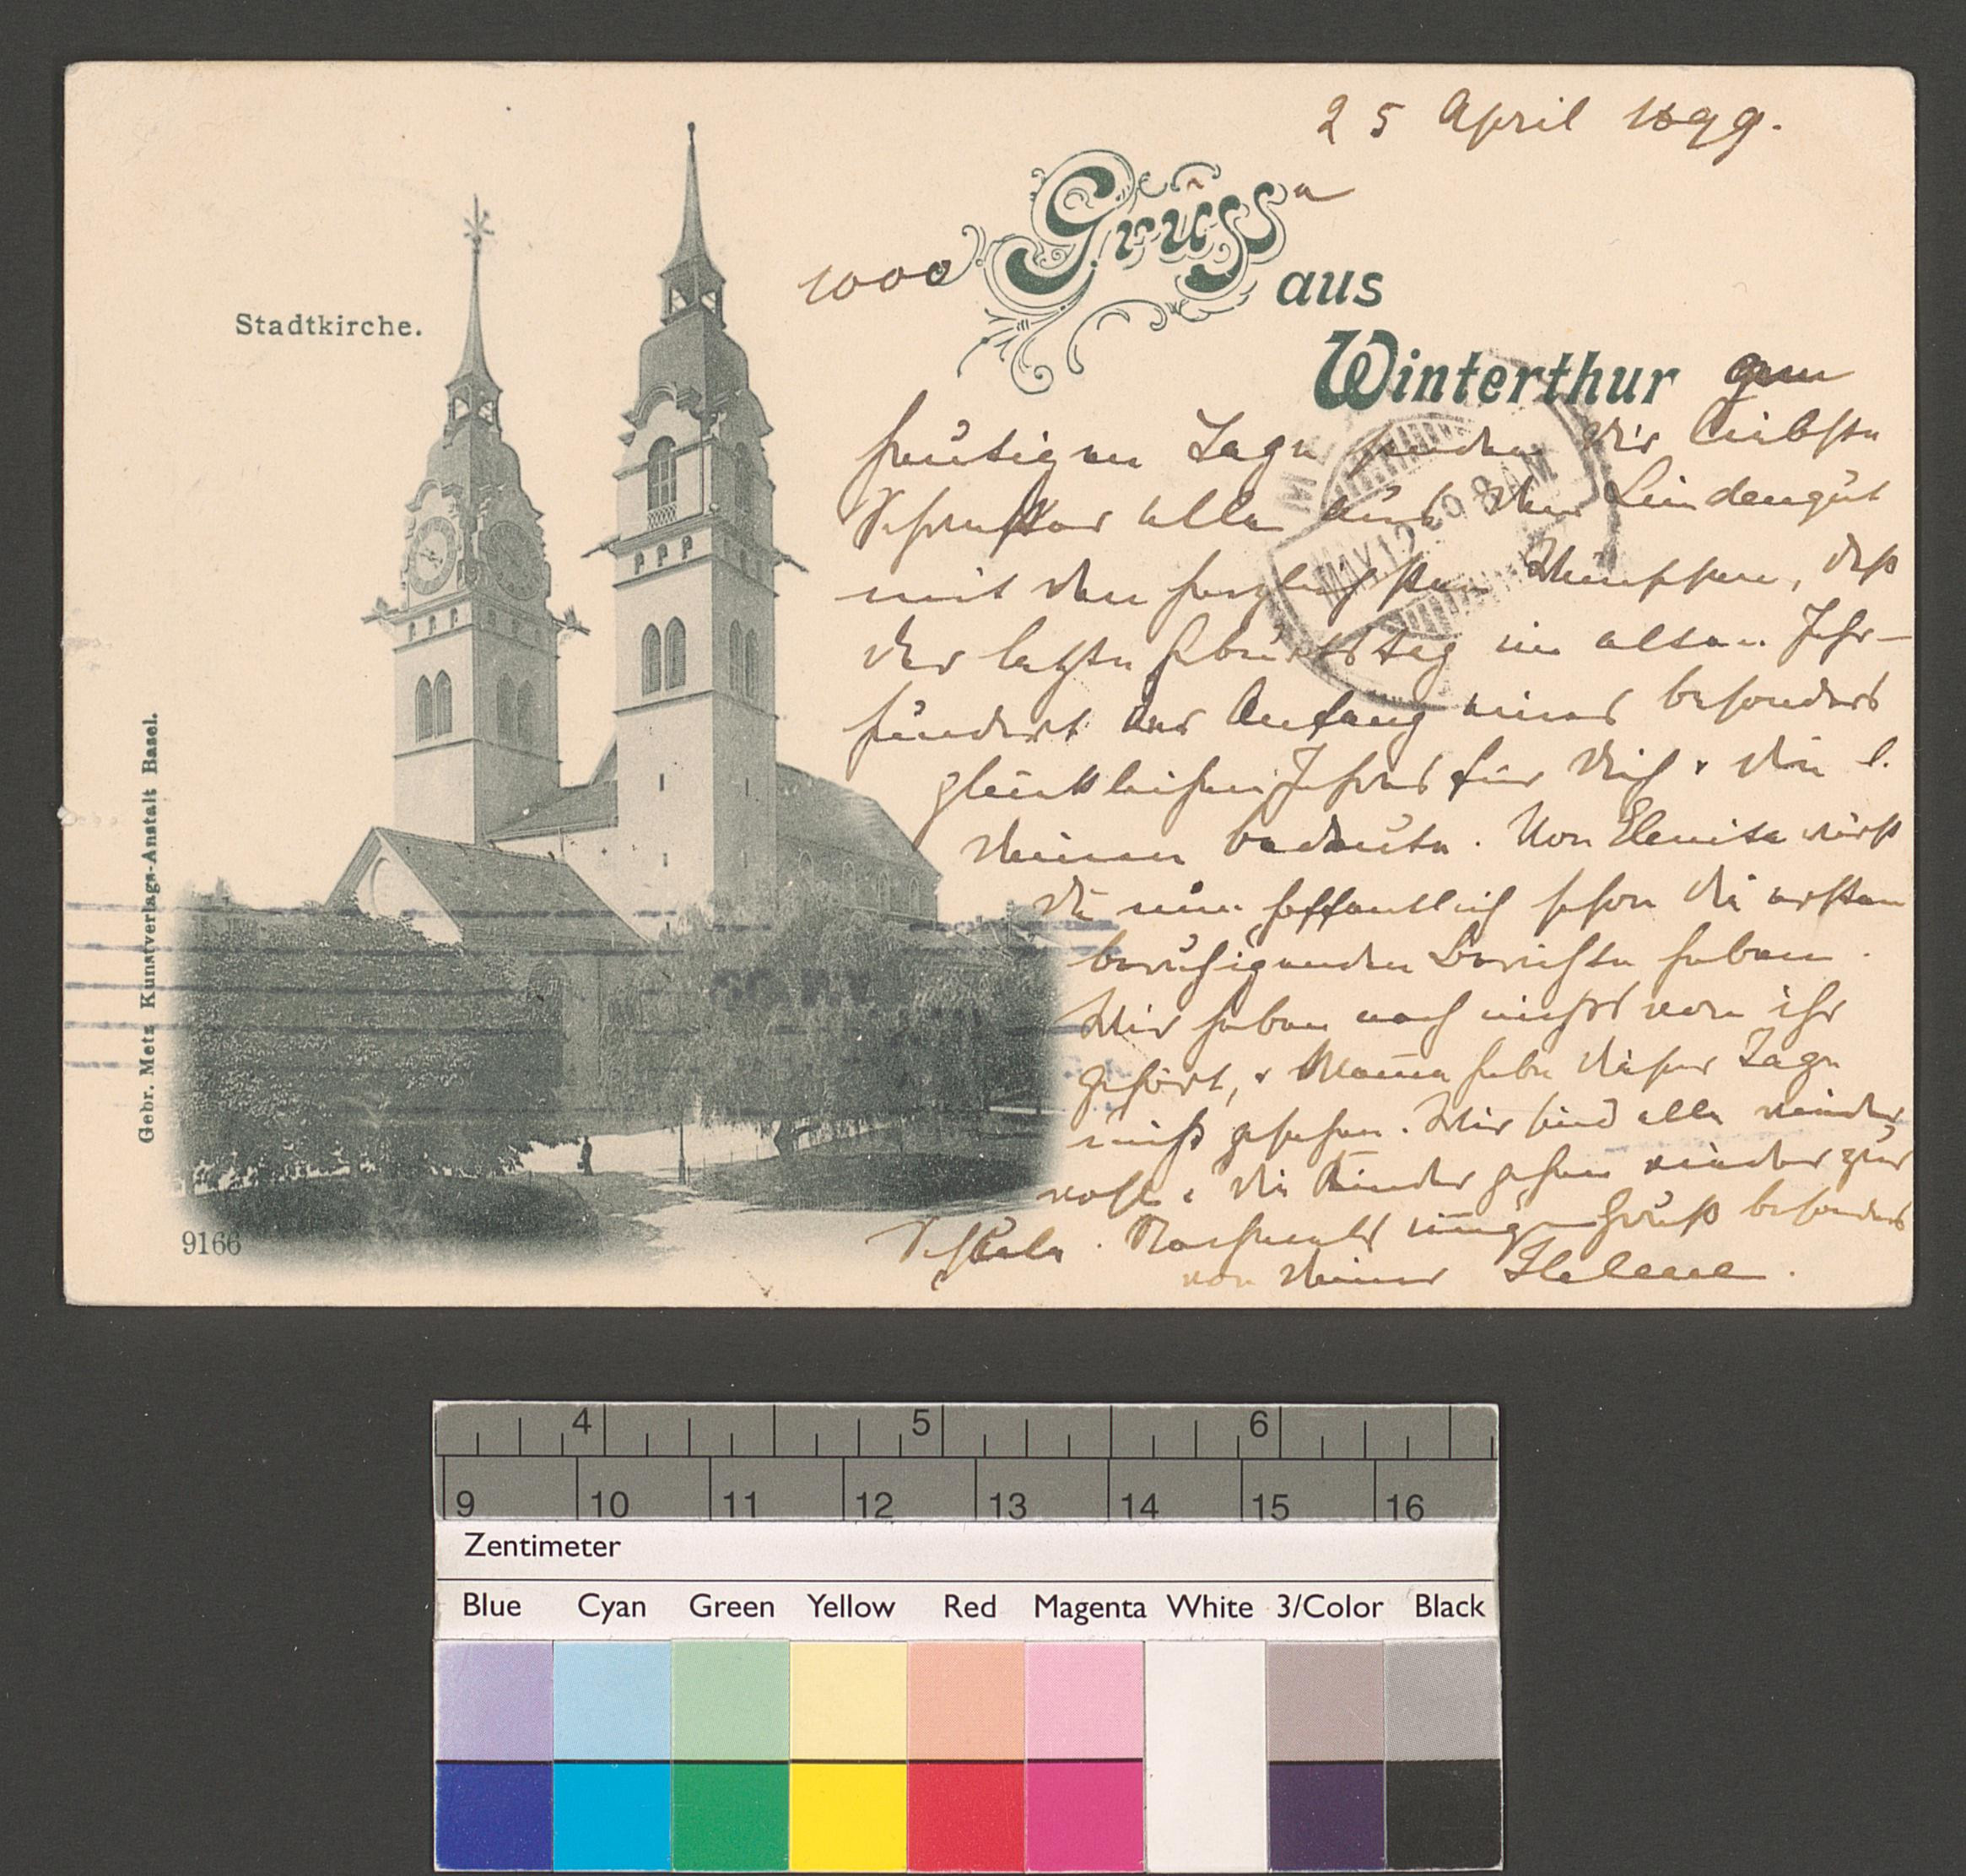 25 April 1899.
1000 Grüsse
aus
Winterthur am
heutigen Tage senden Dir liebste
Schwester alle aus dem Lindengut
mit den herzlichsten Wünschen, daß
der letzte Geburtstag im alten Jahr-
hundert der Anfang eines besonders
glücklichen Jahres für Dich & die l.
Deinen bedeute. Von Elenita wirst
Du nun hoffentlich schon die ersten
beruhigenden Berichte haben.
Wir haben noch nichts von ihr
gehört, & Mama habe dieser Tage
nicht gesehen. Wir sind alle wieder
wohl & die Kinder gehen wieder zur
Schule. Nochmals innigen Gruß besonders
von Deiner Helene.
Stadtkirche.
Gebr. Metz Kunstverlags-Anstalt Basel.
9166
MAY 12 99 8 AM
4 5 6
9 10 11 12 13 14 15 16
Zentimeter
Blue Cyan Green Yellow Red Magenta White 3/Color Black